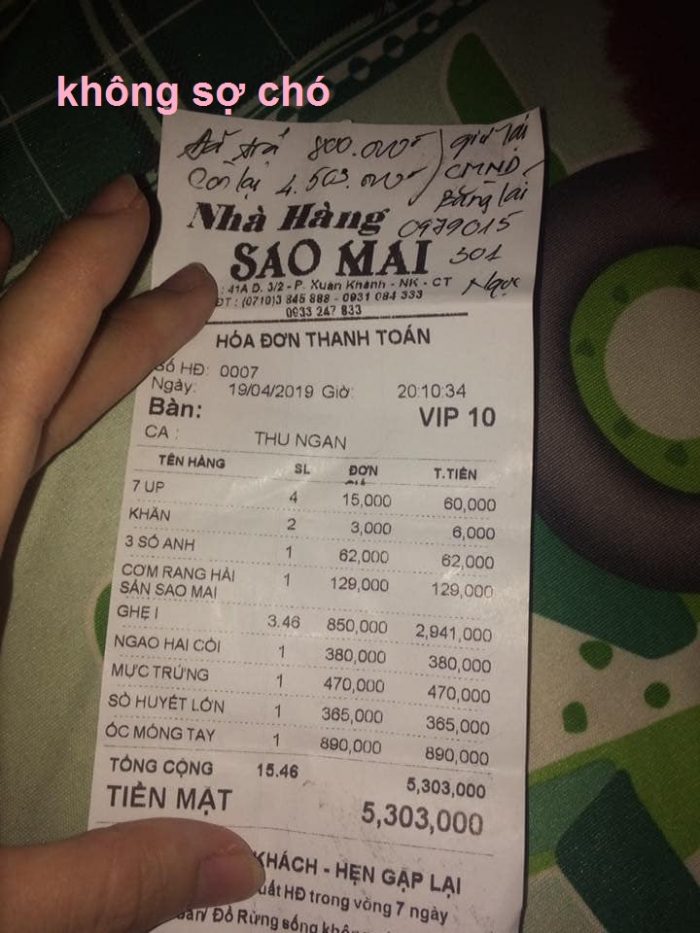 không sợ chó
Đã trả 800.000đ
Còn lại 4.503.000đ
giữ lại
CMND
Bằng lái
0979015
301
Ngọc
Nhà Hàng
SAO MAI
: 41A D. 3/2 - P. Xuân Khánh - NK - CT
ĐT : (0710)3 845 888 - 0931 084 333
0933 247 833
HÓA ĐƠN THANH TOÁN
Số HĐ: 0007
Ngày: 19/04/2019 Giờ: 20:10:34
Bàn: VIP 10
CA : THU NGAN
TÊN HÀNG SL ĐƠN T.TIỀN
7 UP 4 15,000 60,000
KHĂN 2 3,000 6,000
3 SỐ ANH 1 62,000 62,000
CƠM RANG HẢI 1 129,000 129,000
SẢN SAO MAI
GHẸ I 3.46 850,000 2,941,000
NGAO HAI CỒI 1 380,000 380,000
MỰC TRỨNG 1 470,000 470,000
SÒ HUYẾT LỚN 1 365,000 365,000
ỐC MÓNG TAY 1 890,000 890,000
TỔNG CỘNG 15.46 5,303,000
TIỀN MẶT 5,303,000
KHÁCH - HẸN GẶP LẠI
HĐ trong vòng 7 ngày
Đồ Rừng sống